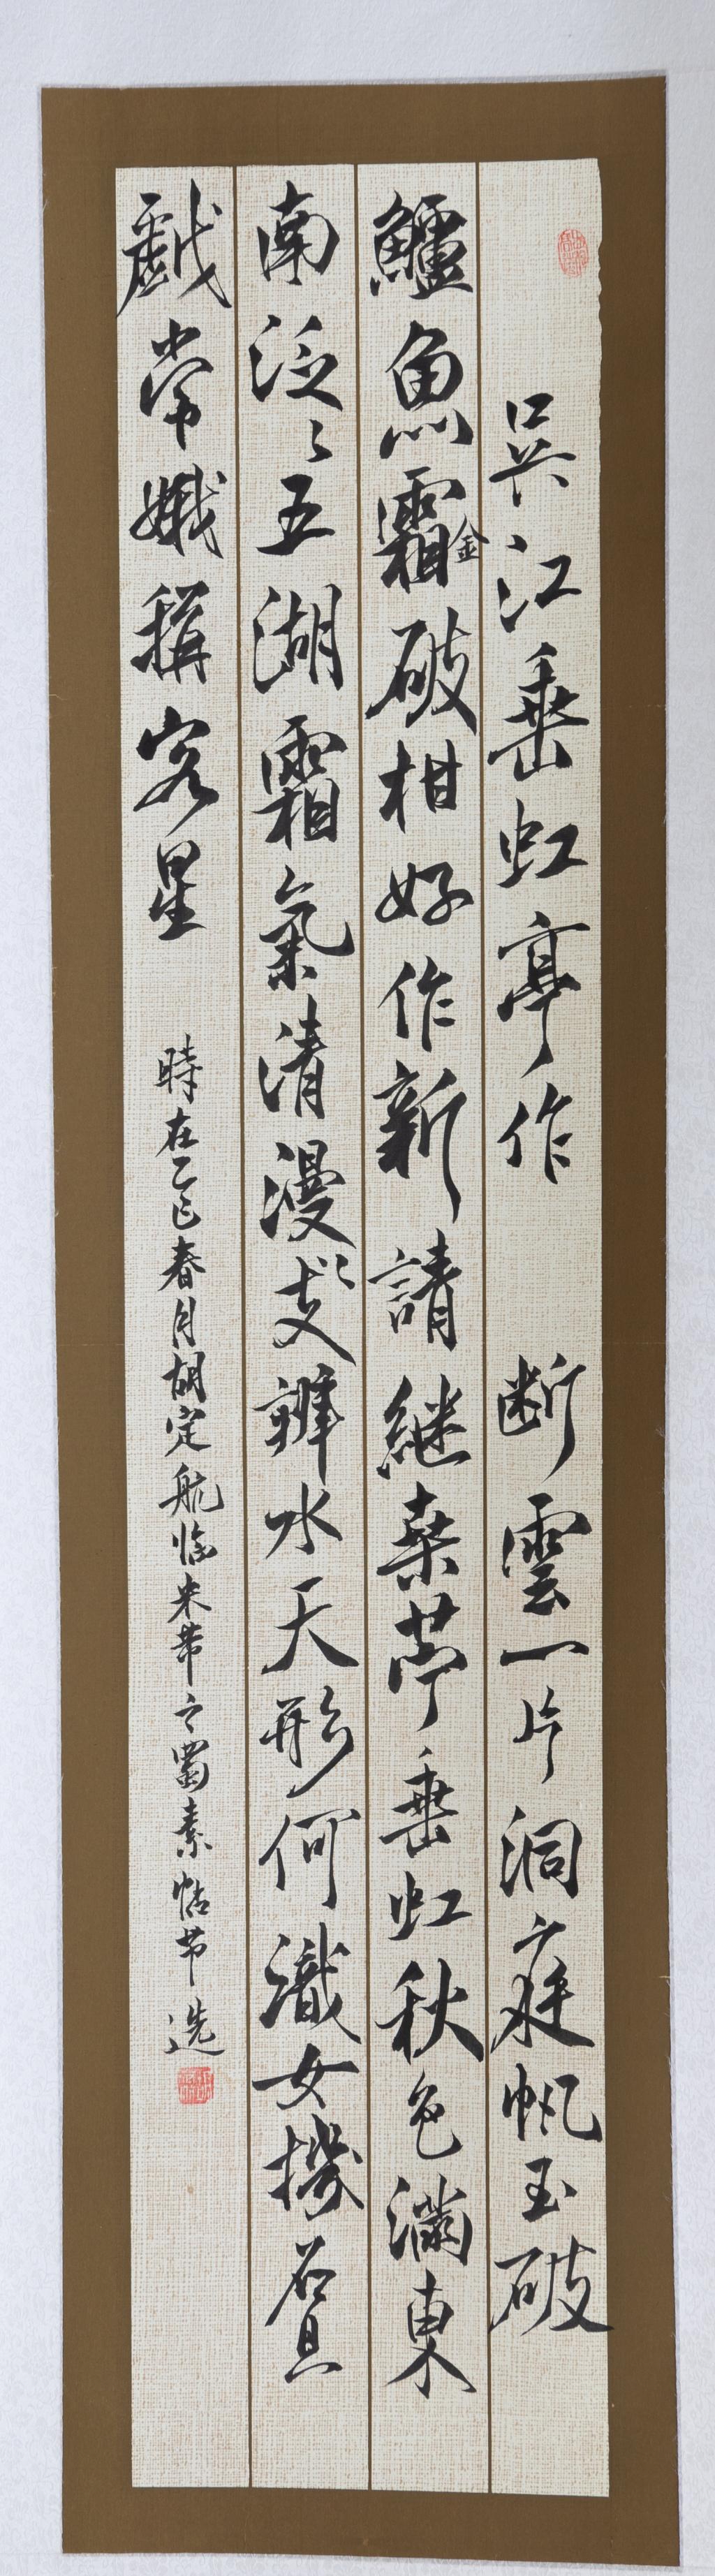 吳江垂虹亭作 断雲一片洞庭帆玉破
鱸魚霜金破柑好作新請継桑苧垂虹秋色滿東
南泛〻五湖霜氣清漫〻支辨水天形何織女機石且
戱常娥稱客星 時在乙巳春月胡定航临米芾之蜀素帖节选